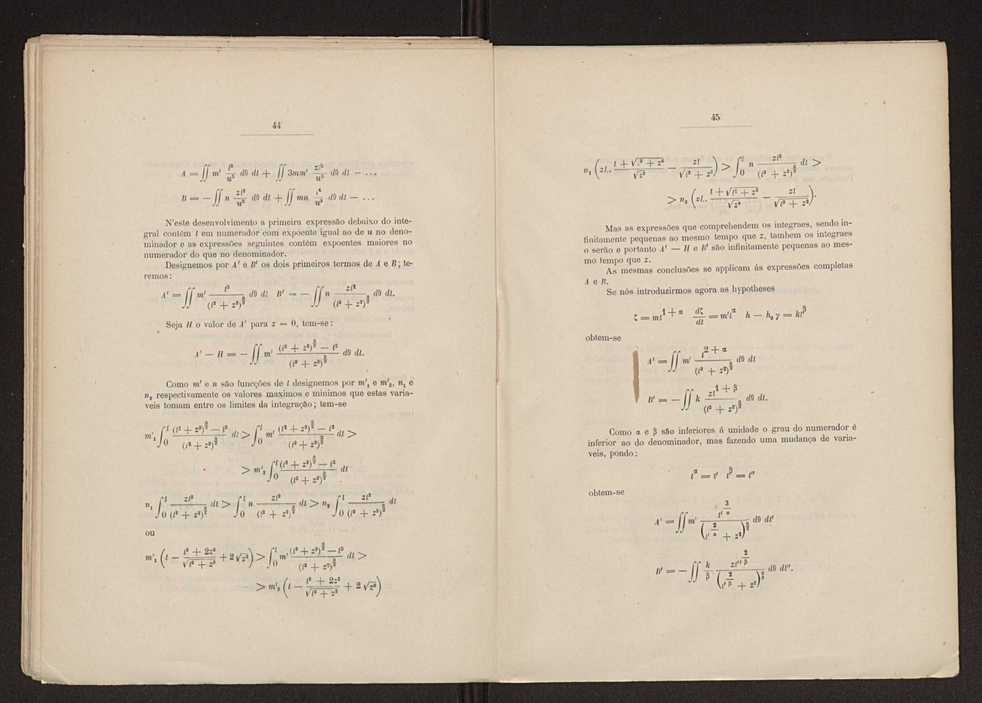 44
A = ∬ m' l³/u³ dθ dl + ∬ 3mm' zl³/u⁵ dθ dl − ...
B = − ∬ n zl²/u³ dθ dl + ∬ mn l⁴/u⁵ dθ dl − ...
N'este desenvolvimento a primeira expressão debaixo do inte-
gral contém l em numerador com expoente igual ao de u no deno-
minador e as expressões seguintes contém expoentes maiores no
numerador do que no denominador.
Designemos por A' e B' os dois primeiros termos de A e B; te-
remos:
A' = ∬ m' l³/(l² + z²)^{3/2} dθ dl B' = − ∬ n zl²/(l² + z²)^{3/2} dθ dl.
Seja H o valor de A' para z = 0, tem-se:
A' − H = − ∬ m' ((l² + z²)^{3/2} − l³)/(l² + z²)^{3/2} dθ dl.
Como m' e n são funcções de l designemos por m'₁ e m'₂, n₁ e
n₂ respectivamente os valores maximos e minimos que estas varia-
veis tomam entre os limites da integração; tem-se
m'₁ ∫₀^l ((l² + z²)^{3/2} − l³)/(l² + z²)^{3/2} dl > ∫₀^l m' ((l² + z²)^{3/2} − l³)/(l² + z²)^{3/2} dl >
> m'₂ ∫₀^l ((l² + z²)^{3/2} − l³)/(l² + z²)^{3/2} dl
n₁ ∫₀^l zl²/(l² + z²)^{3/2} dl > ∫₀^l n zl²/(l² + z²)^{3/2} dl > n₂ ∫₀^l zl²/(l² + z²)^{3/2} dl
ou
m'₁ (l − (l² + 2z²)/√(l² + z²) + 2√z²) > ∫₀^l m' ((l² + z²)^{3/2} − l³)/(l² + z²)^{3/2} dl >
> m'₂ (l − (l² + 2z²)/√(l² + z²) + 2√z²)
45
n₁ (zl.. (l + √(l² + z²))/√z² − zl/√(l² + z²)) > ∫₀^l n zl²/(l² + z²)^{3/2} dl >
> n₂ (zl.. (l + √(l² + z²))/√z² − zl/√(l² + z²)).
Mas as expressões que comprehendem os integraes, sendo in-
finitamente pequenas ao mesmo tempo que z, tambem os integraes
o serão e portanto A' − H e B' são infinitamente pequenas ao mes-
mo tempo que z.
As mesmas conclusões se applicam ás expressões completas
A e B.
Se nós introduzirmos agora as hypotheses
ζ = ml^{1 + α} dζ/dl = m'l^α h − h₀ γ = kl^β
obtem-se
A' = ∬ m' l^{2 + α}/(l² + z²)^{3/2} dθ dl
B' = − ∬ k zl^{1 + β}/(l² + z²)^{3/2} dθ dl.
Como α e β são inferiores á unidade o grau do numerador é
inferior ao do denominador, mas fazendo uma mudança de varia-
veis, pondo:
l^α = l' l^β = l''
obtem-se
A' = ∬ m' l'^{3/α}/(l'^{2/α} + z²)^{3/2} dθ dl'
B' = − ∬ k/β zl''^{2/β}/(l''^{2/β} + z²)^{3/2} dθ dl''.